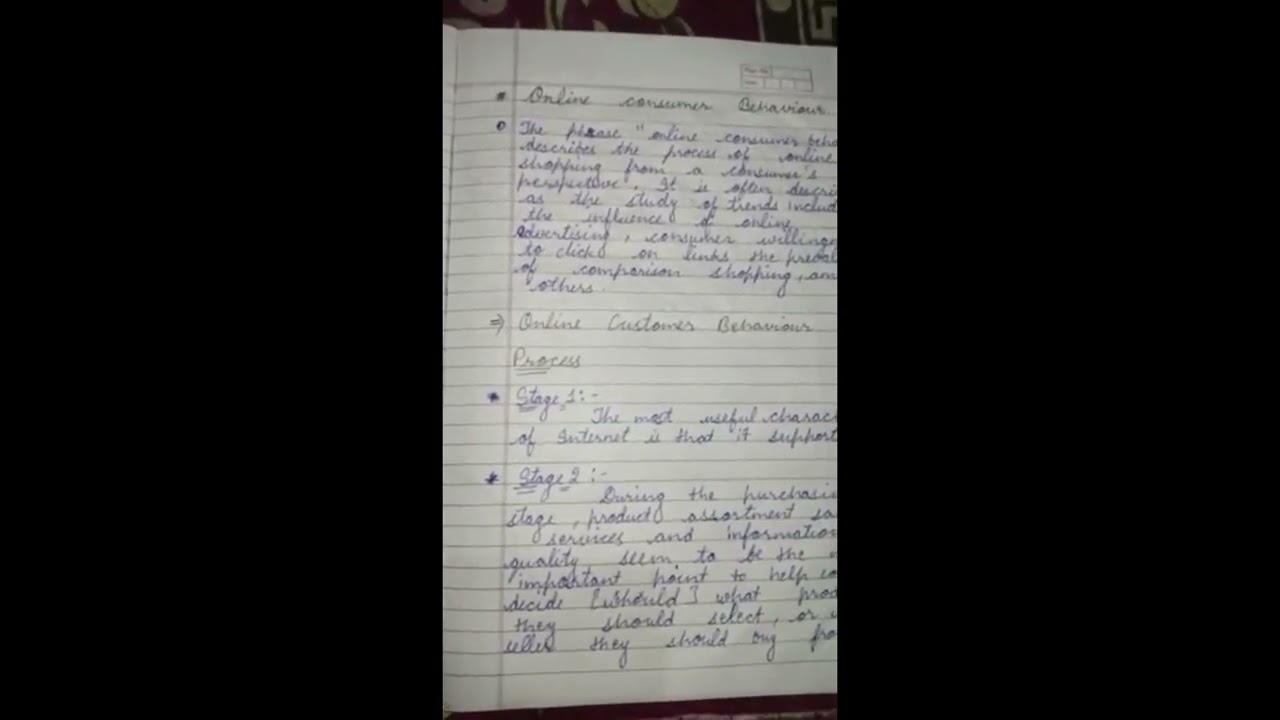 Page No.
Date
* Online consumer Behaviour
o The phrase "online consumer beha
describes the process of online
shopping from a consumer's
perspective. It is often descri
as the study of trends includ
the influence of online
advertising, consumer willing
to click on links the preval
of comparison shopping, am
others.
⇒ Online Customer Behaviour
Process
* Stage 1:-
The most useful charac
of Internet is that it support
* Stage 2:-
During the purchasi
stage, product assortment sa
services and information
quality seem to be the
important point to help co
decide [should] what prod
they should select, or
seller they should buy fro